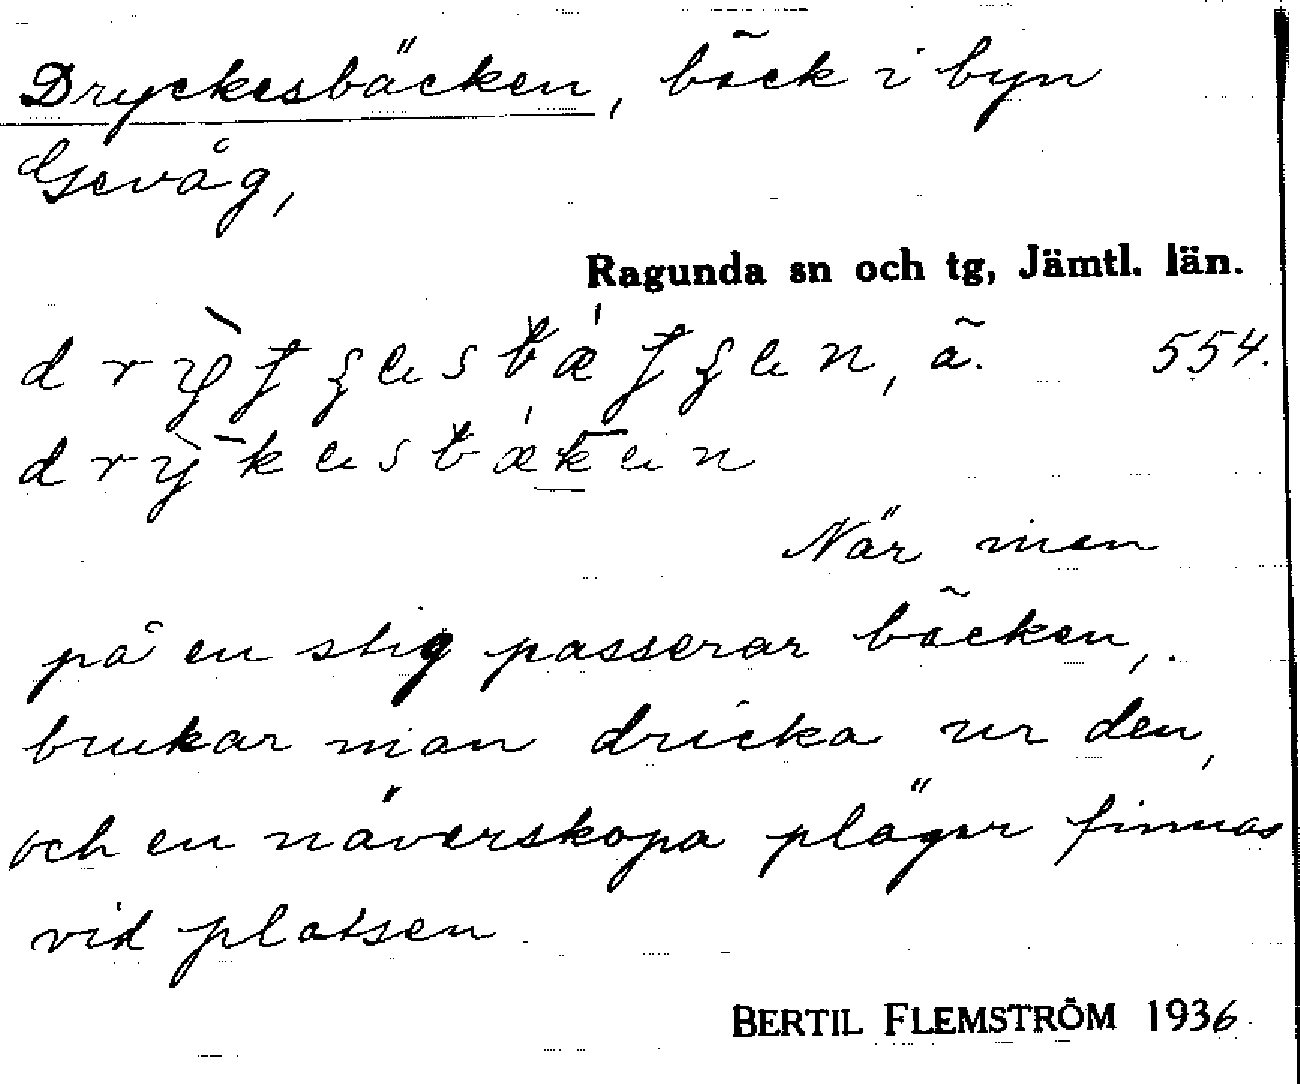 Dryckesbäcken, bäck i byn
Gevåg,
Ragunda sn och tg, Jämtl. län.
ä. 554.
När men
på en stig passerar bäcken,
brukar man dricka ur den,
och en näverskopa pläger finnas
vid platsen.
BERTIL FLEMSTRÖM 1936.